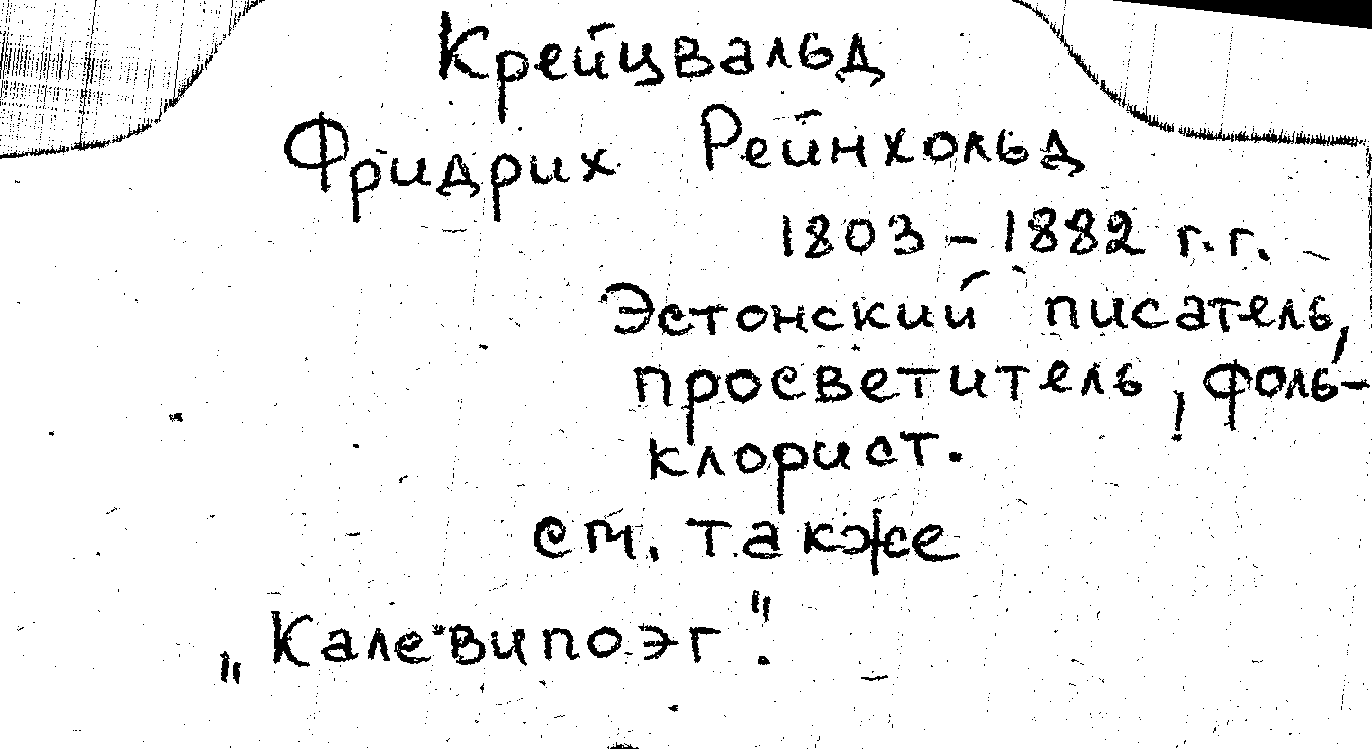 Крейцвальд
Фридрих Рейнхольд
1803 - 1882 г.г.
Эстонский писатель,
просветитель, фоль-
клорист.
см. также
„Калевипоэг".